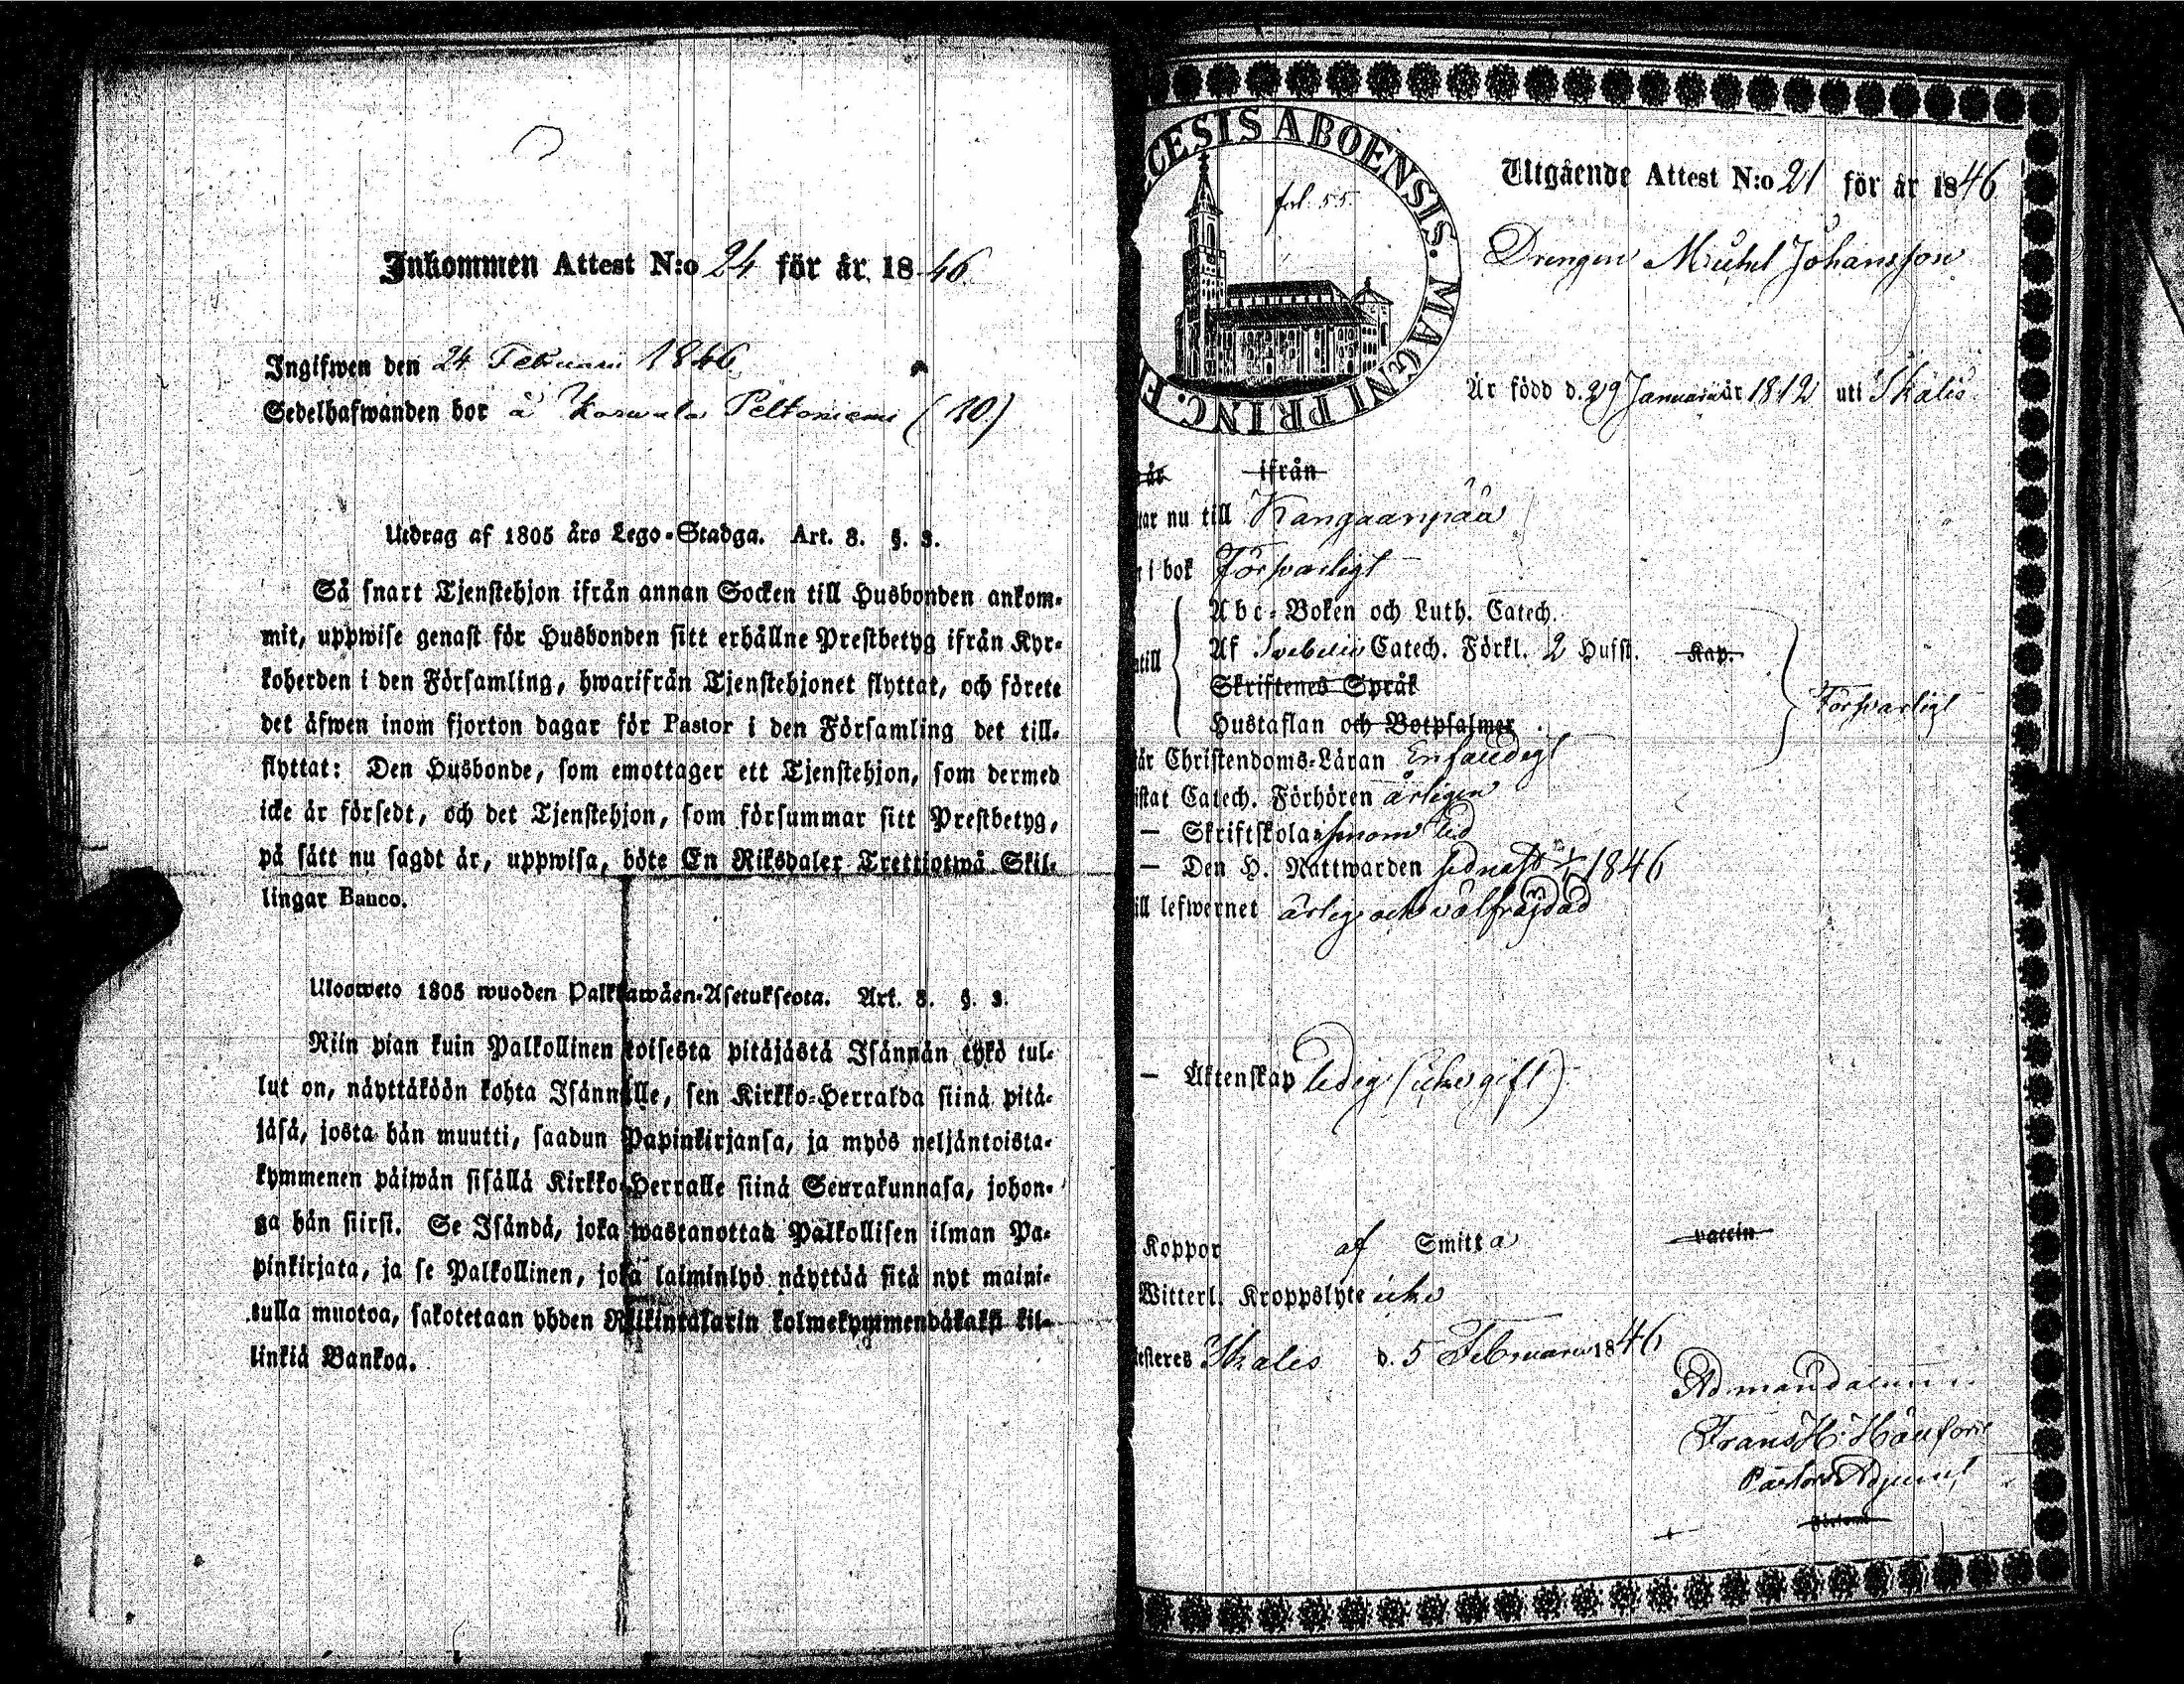 Inkommen Attest N:o 24 för år 1846.
Ingifwen den 24 Februari 1846.
Sedelhafwanden bor å Karwala Peltoniemi (10)
Utdrag af 1805 års Lego-Stadga. Art. 8. §. 3.
Så snart Tjenstehjon ifrån annan Socken till Husbonden ankom-
mit, uppwise genast för Husbonden sitt erhållne Prestbetyg ifrån Kyr-
koherden i den Församling, hwarifrån Tjenstehjonet flyttat, och förete
det äfwen inom fjorton dagar för Pastor i den Församling det till-
flyttat: Den Husbonde, som emottager ett Tjenstehjon, som dermed
icke är försedt, och det Tjenstehjon, som försummar sitt Prestbetyg,
på sätt nu sagdt är, uppwisa, böte En Riksdaler Trettiotwå Skil-
lingar Banco.
Ulosweto 1805 wuoden Palkkawäen-Asetuksesta. Art. 8. §. 3.
Niin pian kuin Palkollinen toisesta pitäjästä Isännän tykö tul-
lut on, näyttäköön kohta Isännälle, sen Kirkko-Herralda siinä pitä-
jäsä, josta hän muutti, saadun Papinkirjansa, ja myös neljäntoista-
kymmenen päiwän sisällä Kirkko-Herralle siinä Seurakunnasa, johon-
ga hän siirsi. Se Isändä, joka wastanottaa Palkollisen ilman Pa-
pinkirjata, ja se Palkollinen, joka laiminlyö näyttää sitä nyt maini-
tulla muotoa, sakotetaan yhden Riikintalarin kolmekymmendäkaksi kil-
linkiä Bankoa.
CESIS ABOENSIS. MAGNI PRINC. F
fol. 55.
Utgående Attest N:o 21 för år 1846
Drengen Michel Johansson
Är född d. 29 Januarii år 1812 uti Ikalis
år ifrån
tar nu till Kangaanpää
n i bok Försvarligt
Abc-Boken och Luth. Catech.
till Af Svebelii Catech. Förkl. 2 Hufst. Kap.
Skriftenes Språk
Försvarligt
Hustaflan och Botpsalmer
är Christendoms-Läran Enfaldigt
istat Catech. Förhören årligen
— Skriftskolan
— Den H. Nattwarden sednast 1/2 1846
ill lefwernet ärlig och välfräjdad
— Äktenskap ledig (icke gift)
Koppor af Smitta vaccin
Witterl. Kroppslyte icke
testeres Ikalis d. 5 Februarii 1846
Ad mandatum
Frans H.
Pastors Adjunct